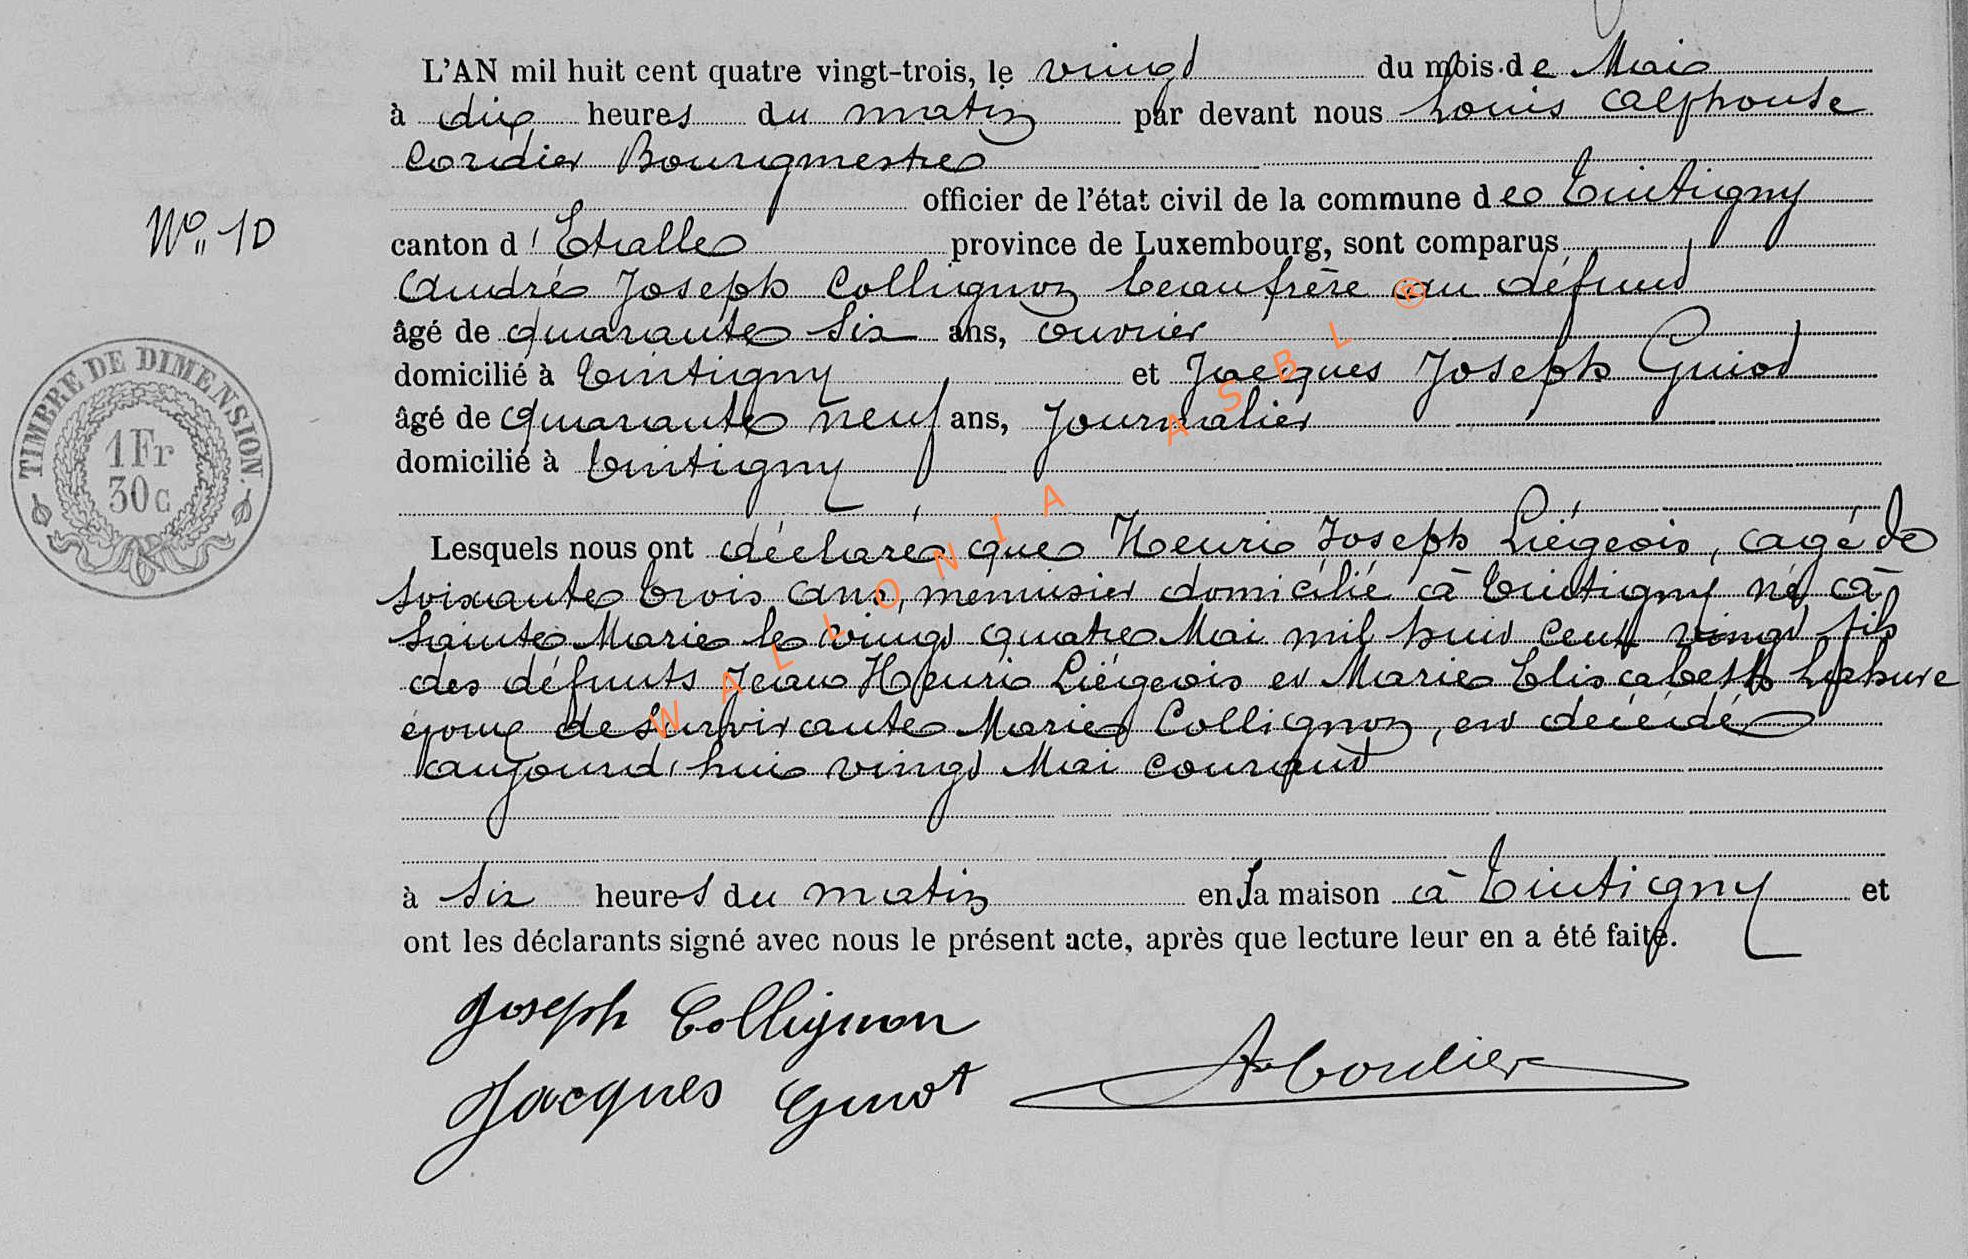 L'AN mil huit cent quatre vingt-trois, le vingt du mois de Mai
à dix heures du matin par devant nous Louis Alphonse
Cordier Bourgmestre
officier de l'état civil de la commune de Tintigny
N° 10
canton d'Etalle province de Luxembourg, sont comparus
André Joseph Collignon beaufrère au défunt
âgé de quarante six ans, ouvrier
domicilié à Tintigny et Jacques Joseph Guiot
âgé de quarante neuf ans, journalier
domicilié à Tintigny
TIMBRE DE DIMENSION.
1 Fr
30 C
Lesquels nous ont déclaré que Henri Joseph Liégeois, agé de
soixante trois ans, menuisier domicilié à Tintigny né à
Sainte Marie le vingt quatre Mai mil huit cent vingt, fils
des défunts Jean Henri Liégeois et Marie Elisabeth
époux de survivante Marie Collignon, est décédé
aujourd'hui vingt Mai courant
à six heures du matin en sa maison à Tintigny et
ont les déclarants signé avec nous le présent acte, après que lecture leur en a été faite.
Joseph Collignon
Jacques Guiot
A Cordier
WALLONIA ASBL ®